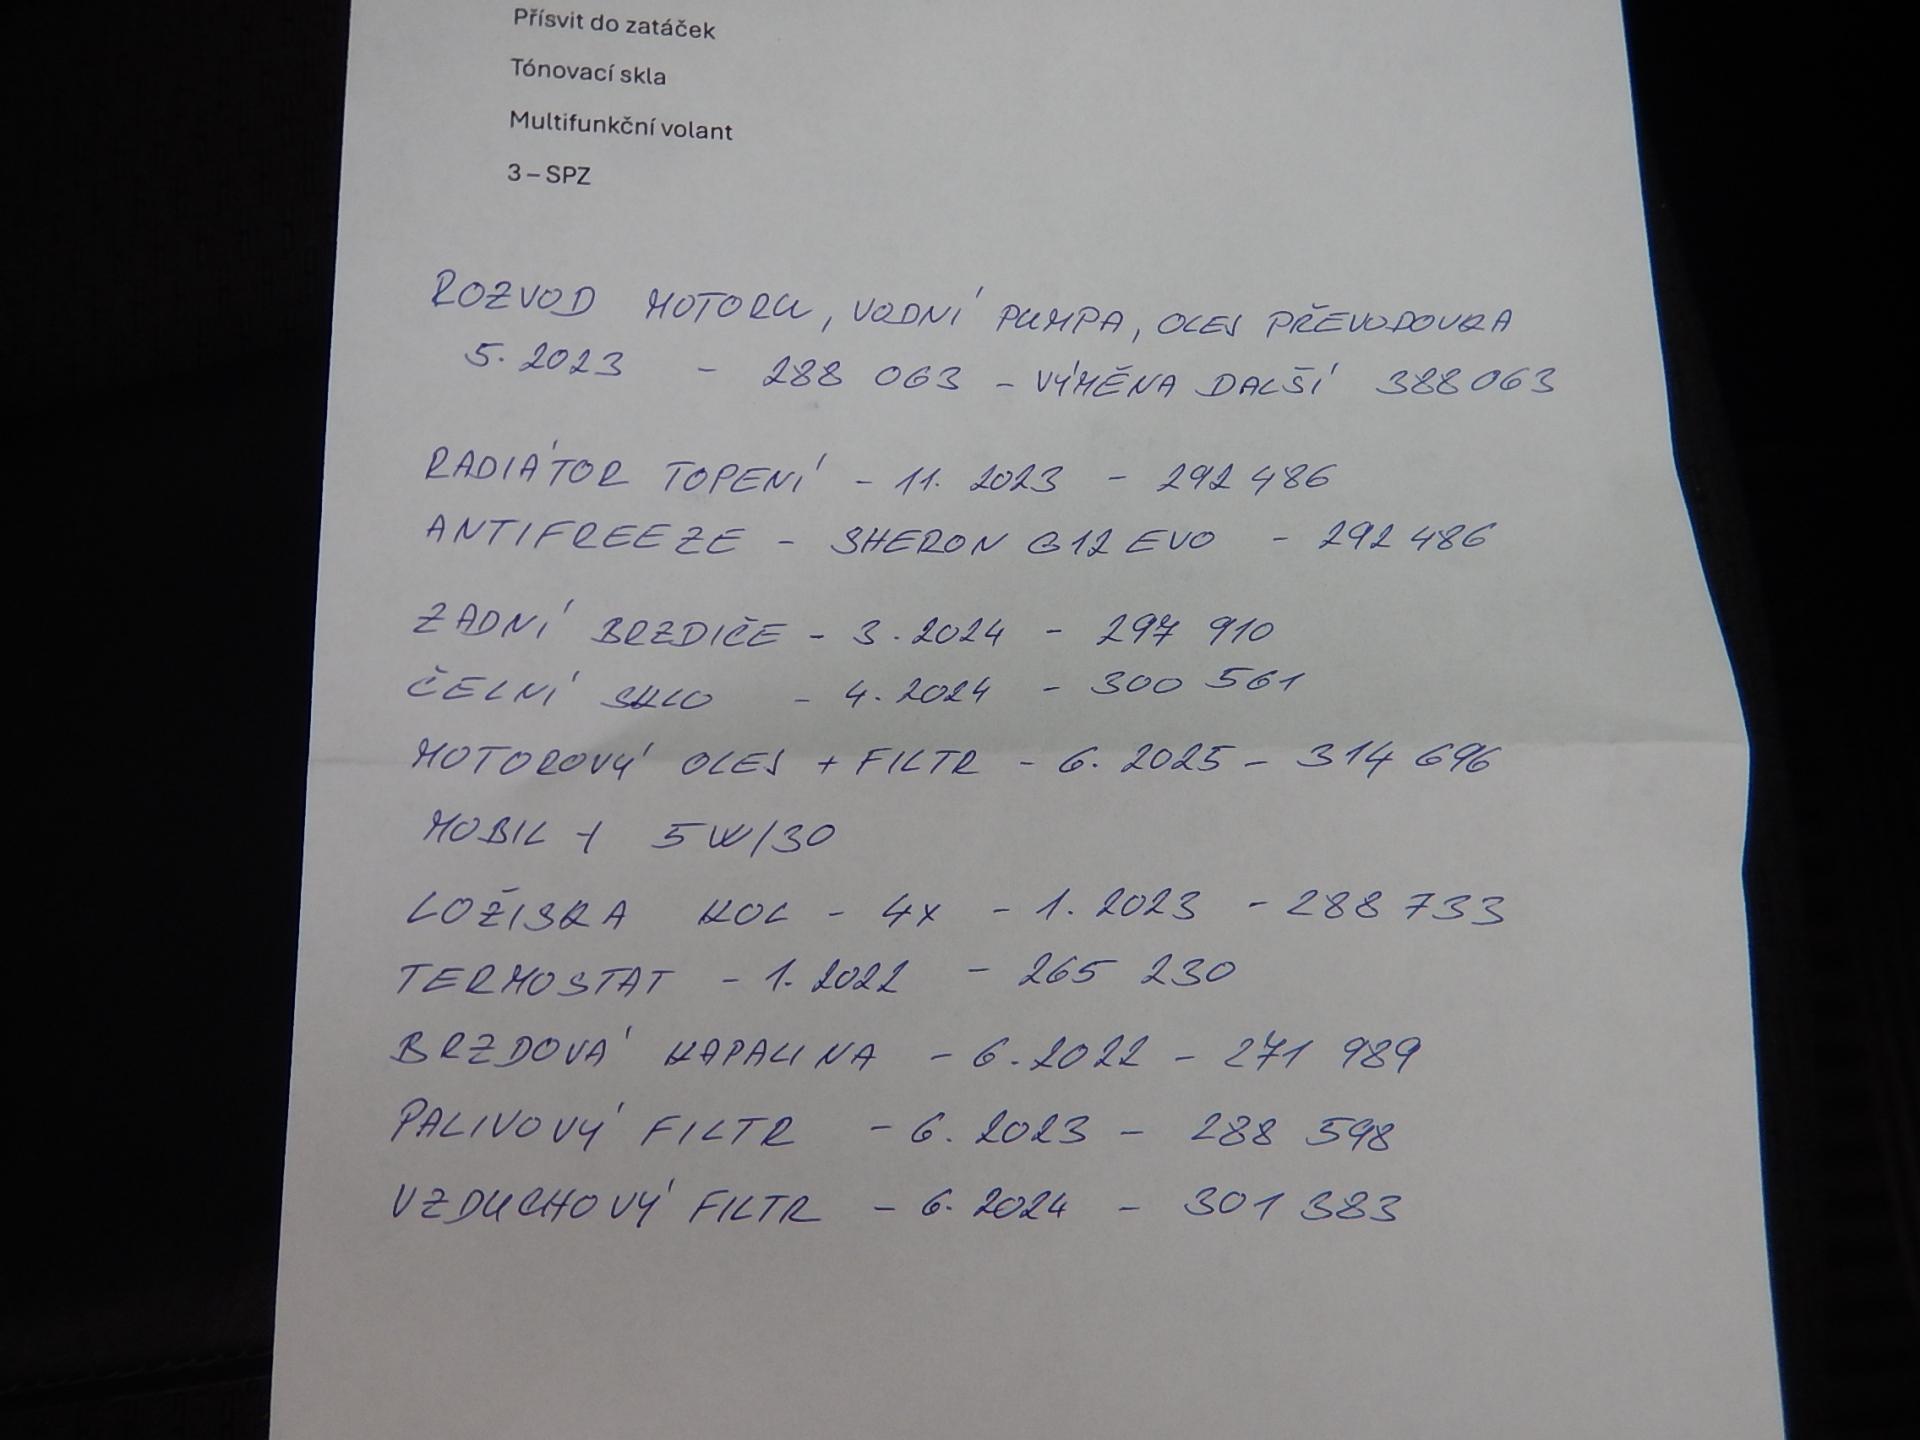 Přísvit do zatáček
Tónovací skla
Multifunkční volant
3 – SPZ
ROZVOD MOTORU, VODNÍ PUMPA, OLEJ PŘEVODOVKA
5. 2023 - 288 063 - VÝMĚNA DALŠÍ 388063
RADIÁTOR TOPENÍ - 11. 2023 - 292 486
ANTIFREEZE - SHERON G12 EVO - 292 486
ZADNÍ BRZDIČE - 3. 2024 - 297 910
ČELNÍ SKLO - 4. 2024 - 300 561
MOTOROVÝ OLEJ + FILTR - 6. 2025 - 314 696
MOBIL 1 5W/30
LOŽISKA KOL - 4x - 1. 2023 - 288 733
TERMOSTAT - 1. 2022 - 265 230
BRZDOVÁ KAPALINA - 6. 2022 - 271 989
PALIVOVÝ FILTR - 6. 2023 - 288 598
VZDUCHOVÝ FILTR - 6. 2024 - 301 383